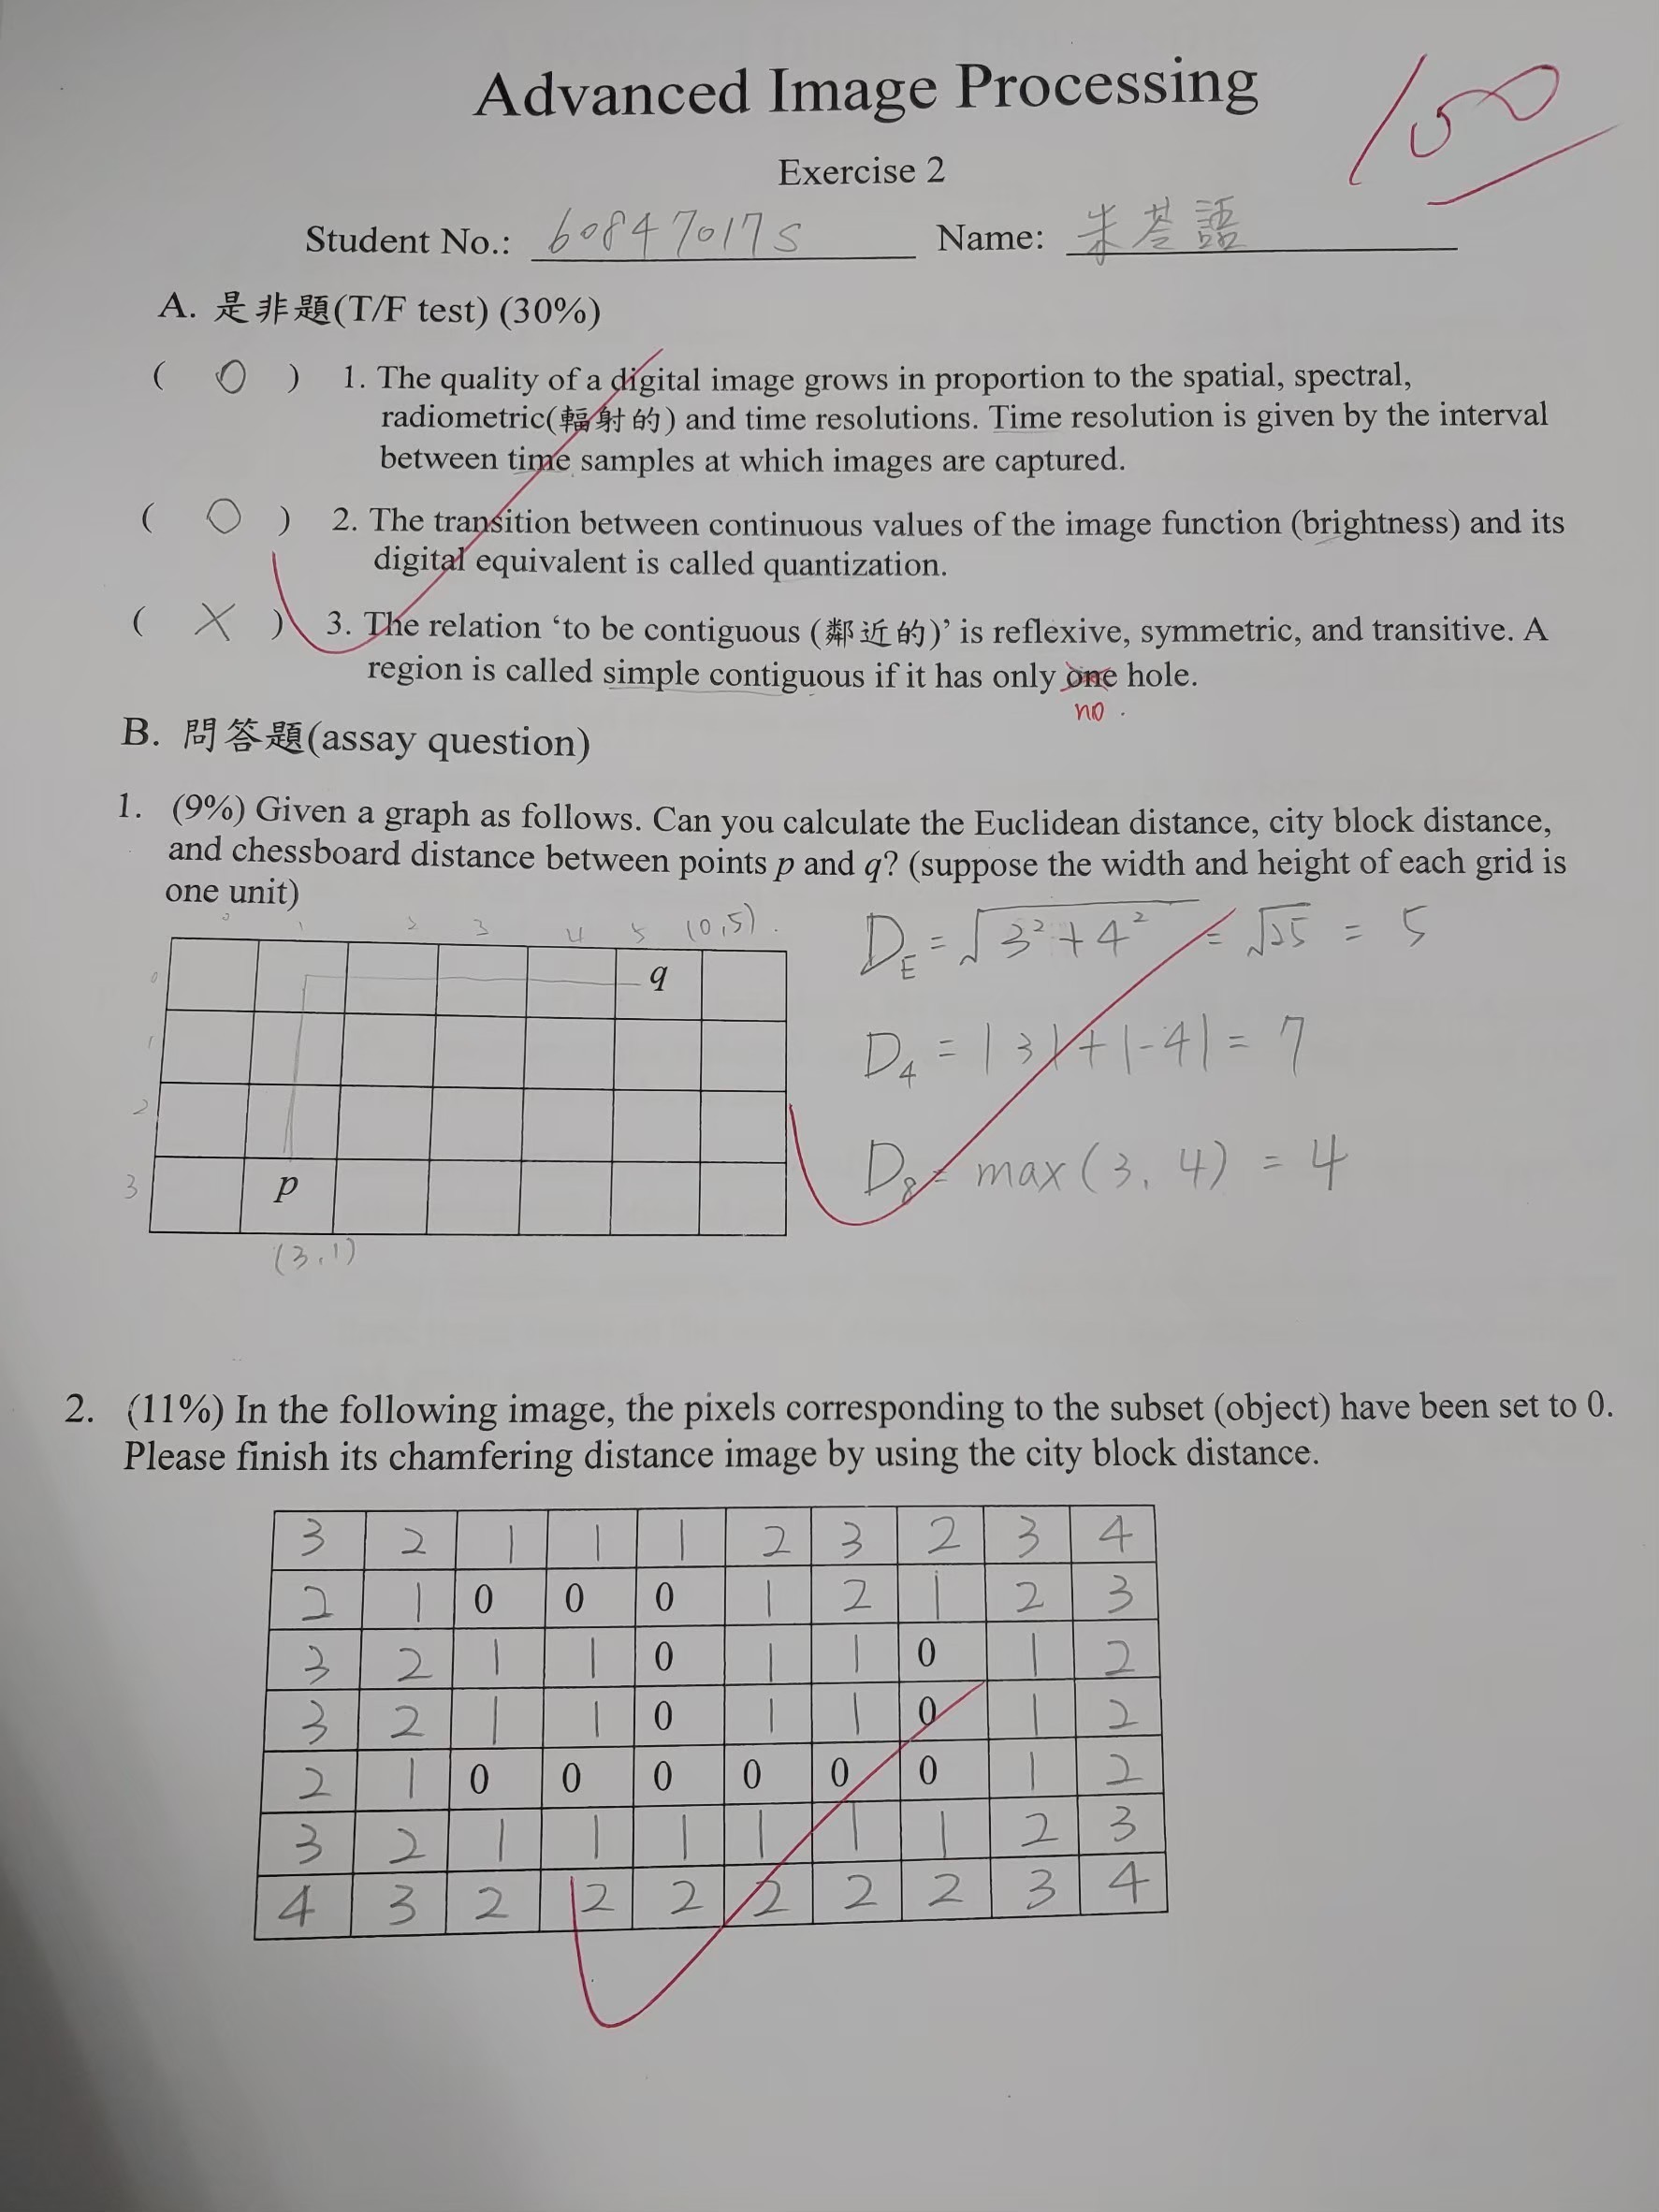 Advanced Image Processing
100
Exercise 2
Student No.: 60847017S Name: 朱苳語
A. 是非題(T/F test) (30%)
( O ) 1. The quality of a digital image grows in proportion to the spatial, spectral,
radiometric(輻射的) and time resolutions. Time resolution is given by the interval
between time samples at which images are captured.
( O ) 2. The transition between continuous values of the image function (brightness) and its
digital equivalent is called quantization.
( X ) 3. The relation ‘to be contiguous (鄰近的)’ is reflexive, symmetric, and transitive. A
region is called simple contiguous if it has only one hole.
no.
B. 問答題(assay question)
1. (9%) Given a graph as follows. Can you calculate the Euclidean distance, city block distance,
and chessboard distance between points p and q? (suppose the width and height of each grid is
one unit)
0 1 2 3 4 5 (0,5).
0 q
1
2
3 p
(3,1)
D_E = √3²+4² = √25 = 5
D_4 = |3|+|-4| = 7
D_8 = max(3, 4) = 4
2. (11%) In the following image, the pixels corresponding to the subset (object) have been set to 0.
Please finish its chamfering distance image by using the city block distance.
3 2 1 1 1 2 3 2 3 4
2 1 0 0 0 1 2 1 2 3
3 2 1 1 0 1 1 0 1 2
3 2 1 1 0 1 1 0 1 2
2 1 0 0 0 0 0 0 1 2
3 2 1 1 1 1 1 1 2 3
4 3 2 2 2 2 2 2 3 4